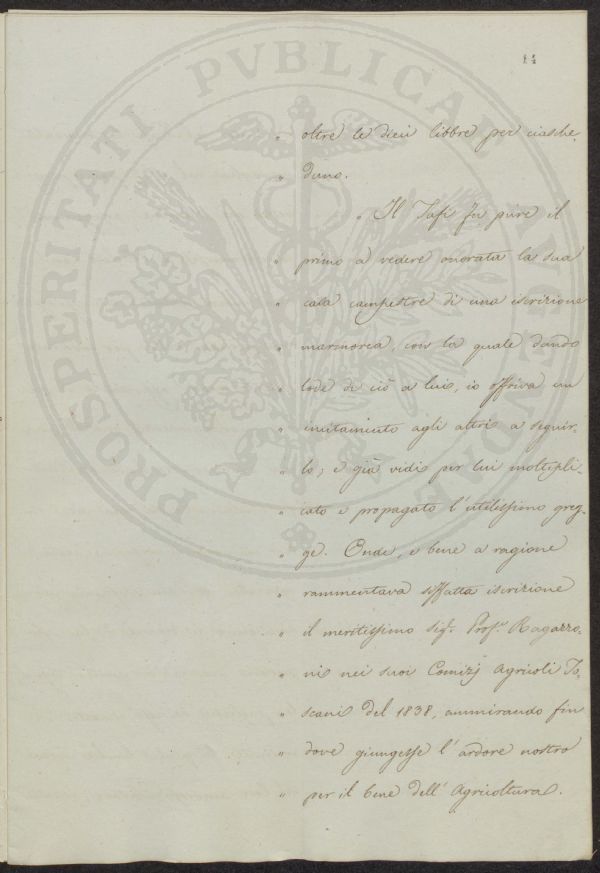 14
PROSPERITATI PVBLICAE AVGENDAE
" oltre le dieci libbre per ciasche
" duno.
" Il Tafi fu pure il
" primo a vedere onorata la sua
" casa campestre di una iscrizione
" marmorea, con la quale dando
" lode di ciò a lui, io offriva un
" incitamento agli altri a seguir-
" lo; e già vidi per lui moltipli-
" cato e propagato l'utilissimo greg-
" ge. Onde, e bene a ragione
" rammentava siffatta iscrizione
" il meritissimo sig.r Prof.r Ragazzo-
" ni nei suoi Comizj Agricoli To-
" scani del 1838, ammirando fin
" dove giungesse l'ardore nostro
" per il bene dell'Agricoltura.